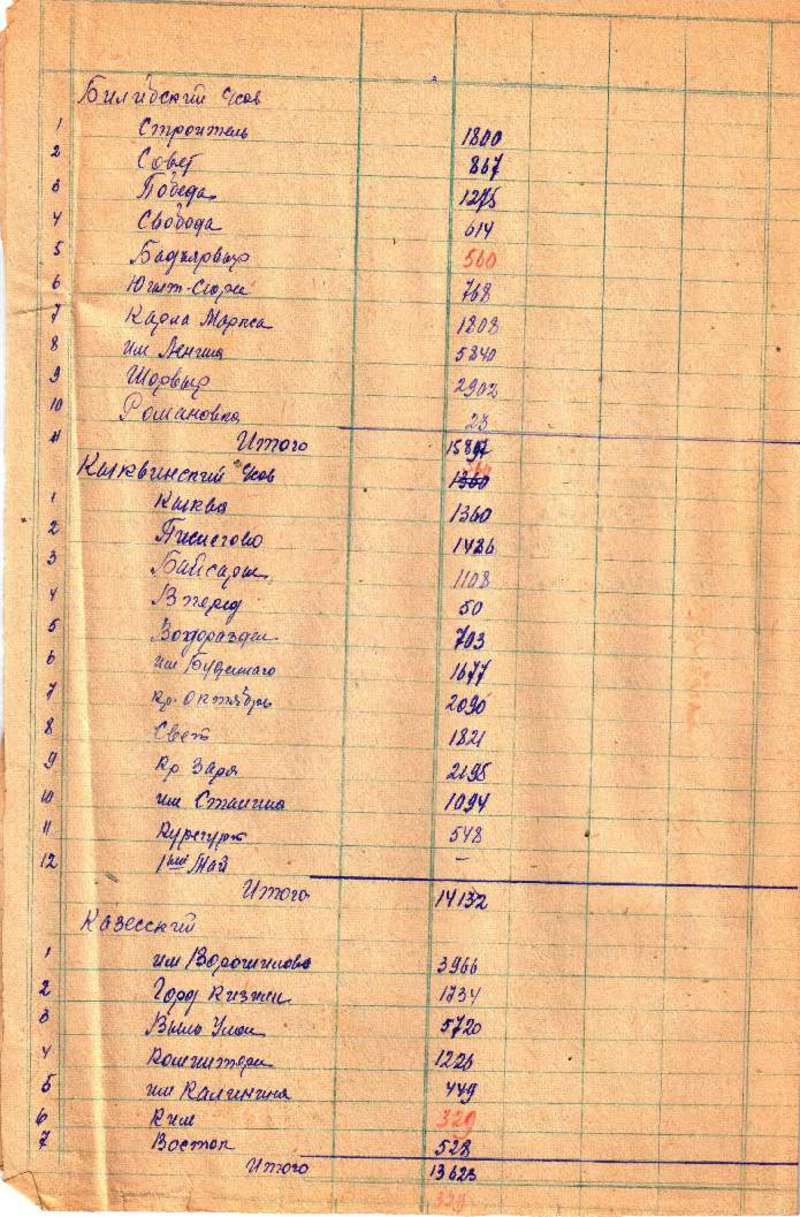 Билибский
1 Строитель 1800
2 Совет 867
3 Победа 1275
4 Свобода 614
5 560
6 768
7 Карла Маркса 1808
8 им Ленина 5840
9 Шорвыр 2902
10 Романовка 23
11 Итого
Кыквинский 1360
1 Кыква 1360
2 1486
3 1108
4 Вперед 50
5 Водораздел 703
6 им Буденного 1677
7 кр. Октябрь 2090
8 Свет 1821
9 кр Заря 2195
10 им Сталина 1094
11 548
12 1ый Май -
Итого 14132
Казесский
1 им Ворошилова 3966
2 Горд Кизили 1734
3 Выль Улон 5720
4 Коминтерн 1226
5 им Калинина 449
6 Ким 329
7 Восток 528
Итого 13623
329